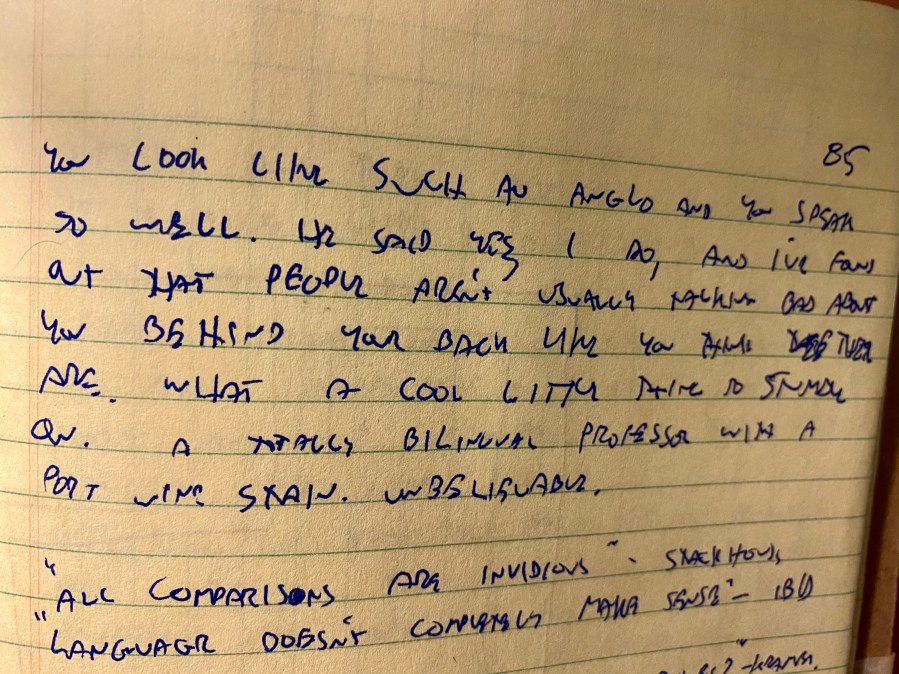 85
You LOOK LIKE SUCH AN ANGLO AND YOU SPEAK
SO WELL. HE SAID YES, I DO, AND I'VE FOUND
OUT THAT PEOPLE AREN'T USUALLY TALKING BAD ABOUT
YOU BEHIND YOUR BACK LIKE YOU THINK THEY
ARE. WHAT A COOL LITTLE THING TO STUMBLE
ON. A TOTALLY BILINGUAL PROFESSOR WITH A
PORT WINE STAIN. UNBELIEVABLE.
"ALL COMPARISONS ARE INVIDIOUS" - STACKHOUSE
"LANGUAGE DOESN'T COMPLETELY MAKE SENSE" - IBID